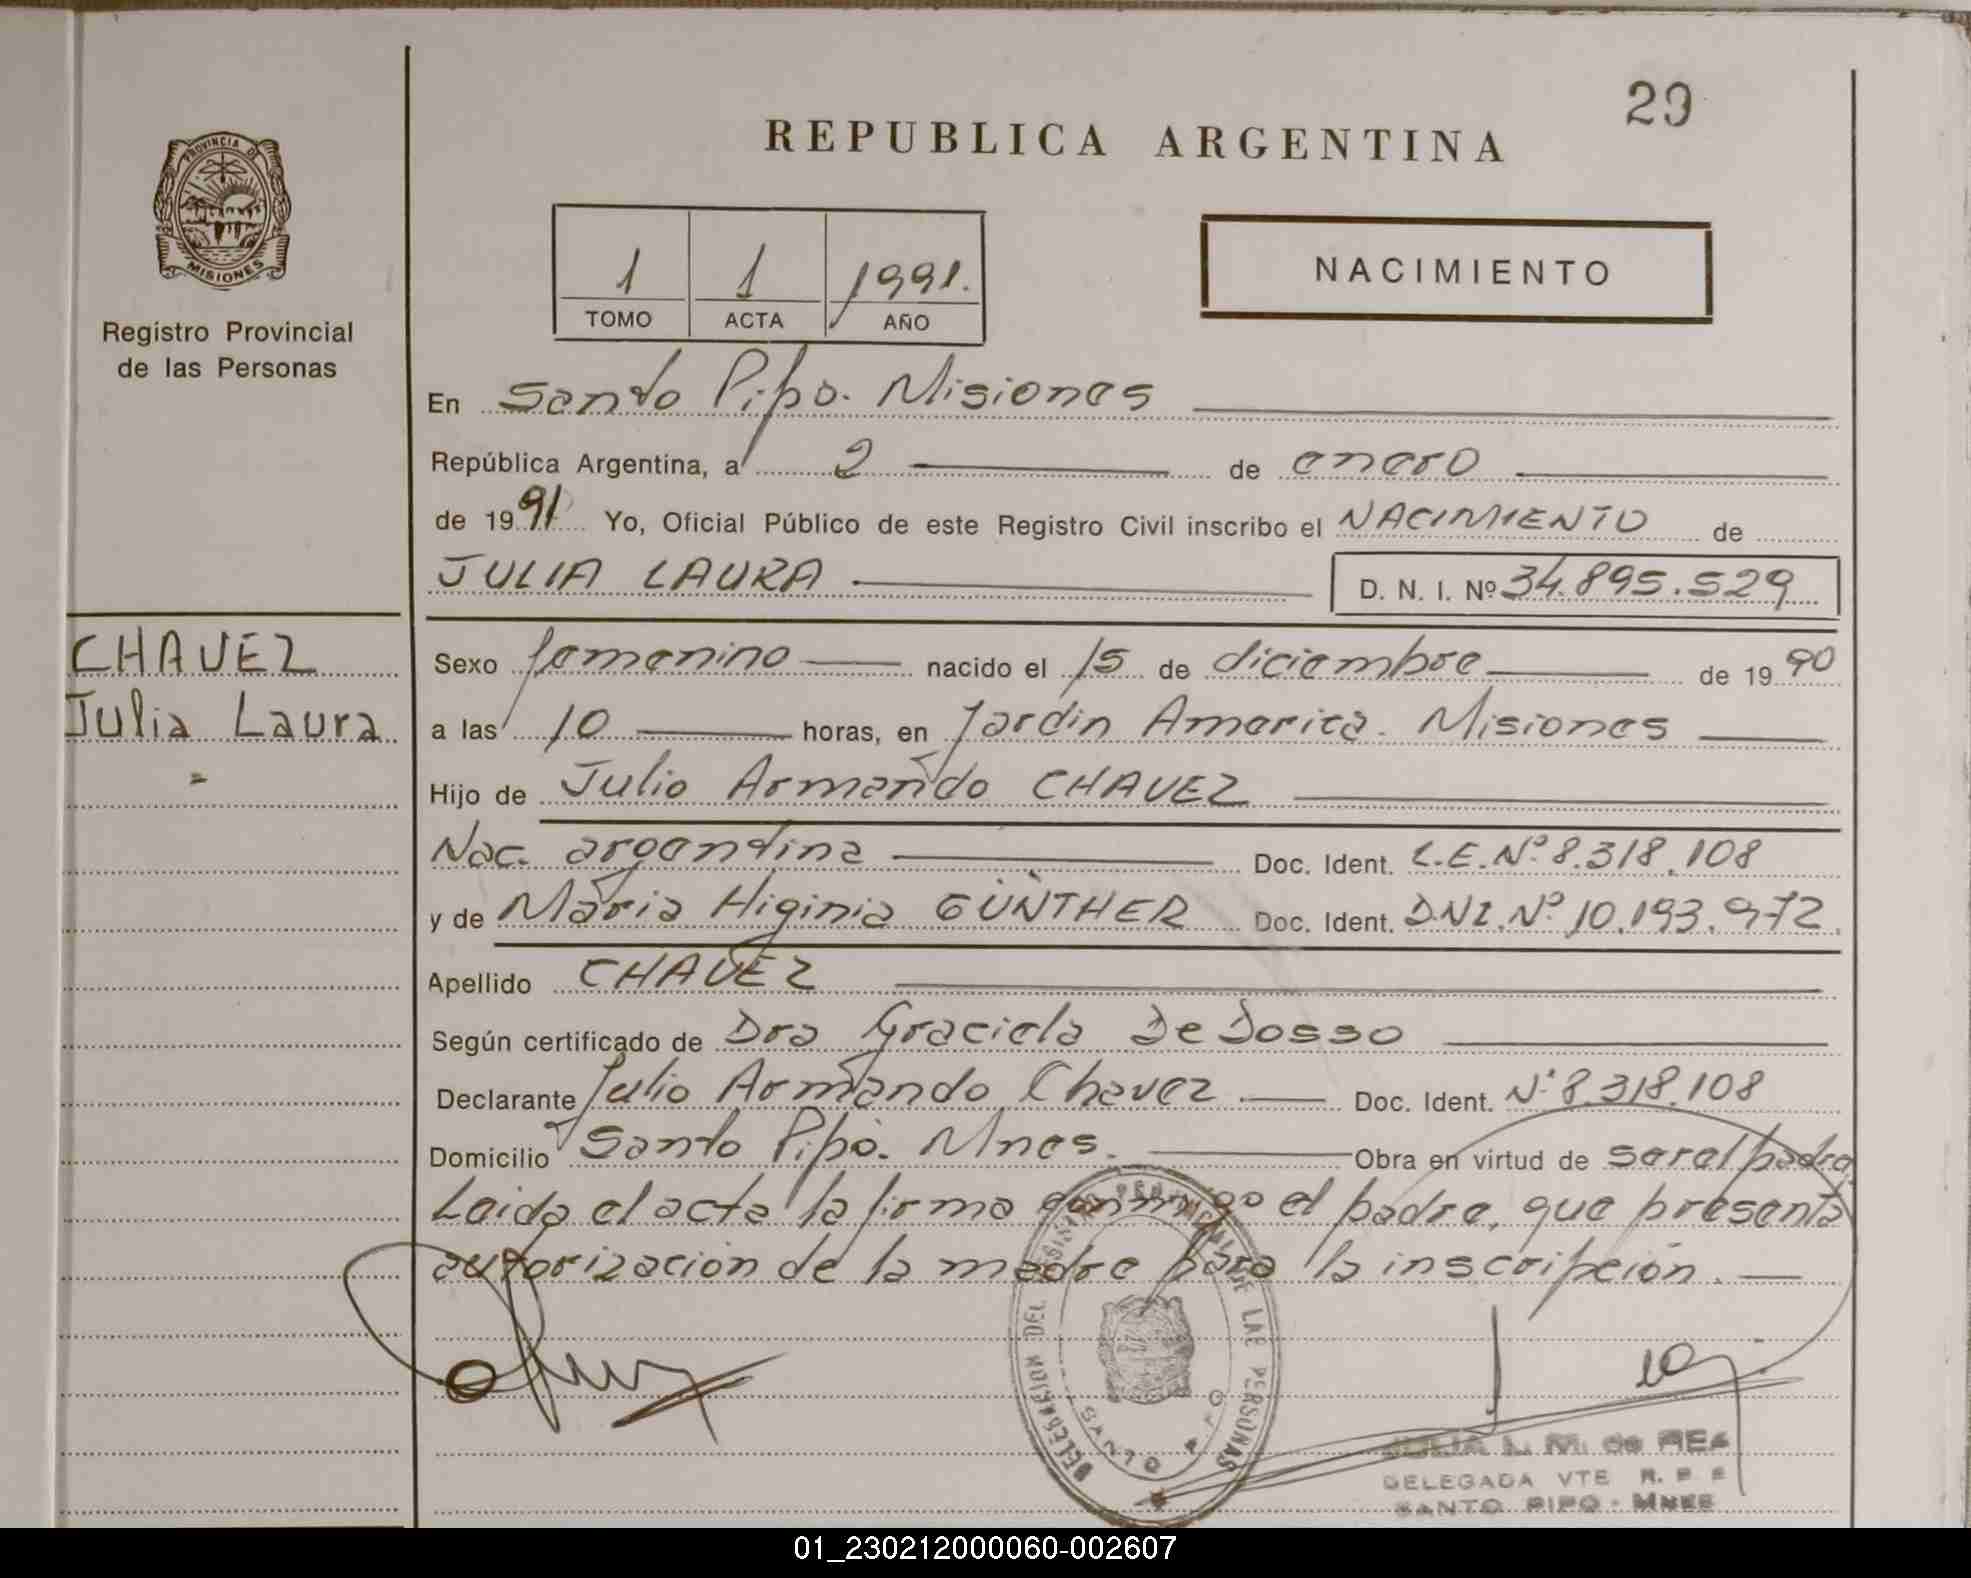 29
REPUBLICA ARGENTINA
PROVINCIA DE
MISIONES
Registro Provincial
de las Personas
1 1 1991.
TOMO ACTA AÑO
NACIMIENTO
En Santo Pipo. Misiones
República Argentina, a 2 de enero
de 1991 Yo, Oficial Público de este Registro Civil inscribo el NACIMIENTO de
JULIA LAURA D. N. I. Nº 34.895.529
CHAVEZ
Julia Laura
Sexo femenino nacido el 15 de diciembre de 1990
a las 10 horas, en Jardin America. Misiones
Hijo de Julio Armando CHAVEZ
Nac. argentina Doc. Ident. L.E.Nº 8.318.108
y de Maria Higinia GÜNTHER Doc. Ident. D.N.I. Nº 10.193.972
Apellido CHAVEZ
Según certificado de Dra Graciela De Dosso
Declarante Julio Armando Chavez Doc. Ident. Nº 8.318.108
Domicilio Santo Pipó. Mnes. Obra en virtud de ser el padre
Leida el acta la firma conmigo el padre, que presenta
autorización de la madre para la inscripción.
DELEGACION DEL REGISTRO PROVINCIAL DE LAS PERSONAS
SANTO PIPO
JULIA L. M. de
DELEGADA VTE R. P. P
SANTO PIPO - MNES
01_230212000060-002607